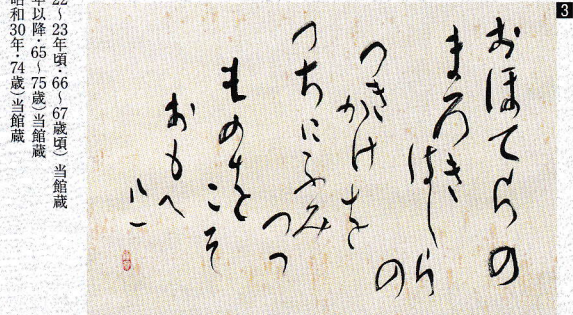 3
おほてらの
まろき
はしらの
つき
かけを
つちにふみ
つつ
ものを
こそ
おもへ
八一
22〜23年頃・66〜67歳頃）当館蔵
年以降・65〜75歳）当館蔵
昭和30年・74歳）当館蔵